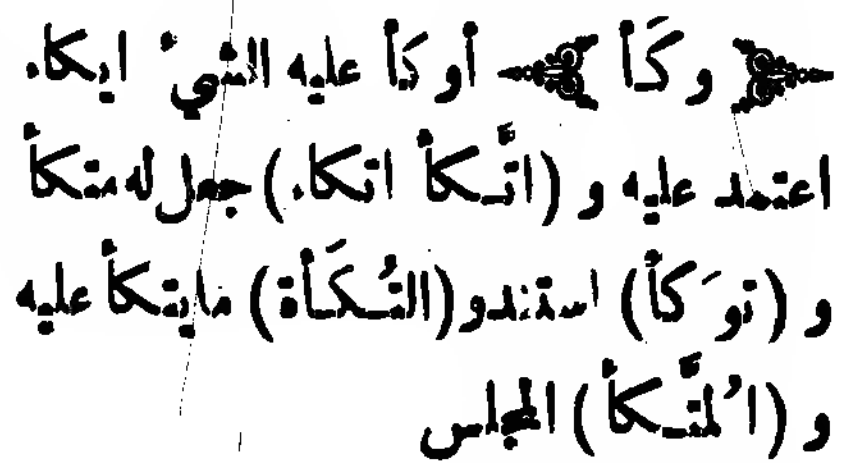 وكَأ أوكأ عليه الشيءُ ايكاء
اعتمد عليه و (اتَّكأ اتكاء) جعل له متكأ
و (توَكأ) استند و (التُكَأة) ما يتكأ عليه
و (المُتَّكأ) المجلس